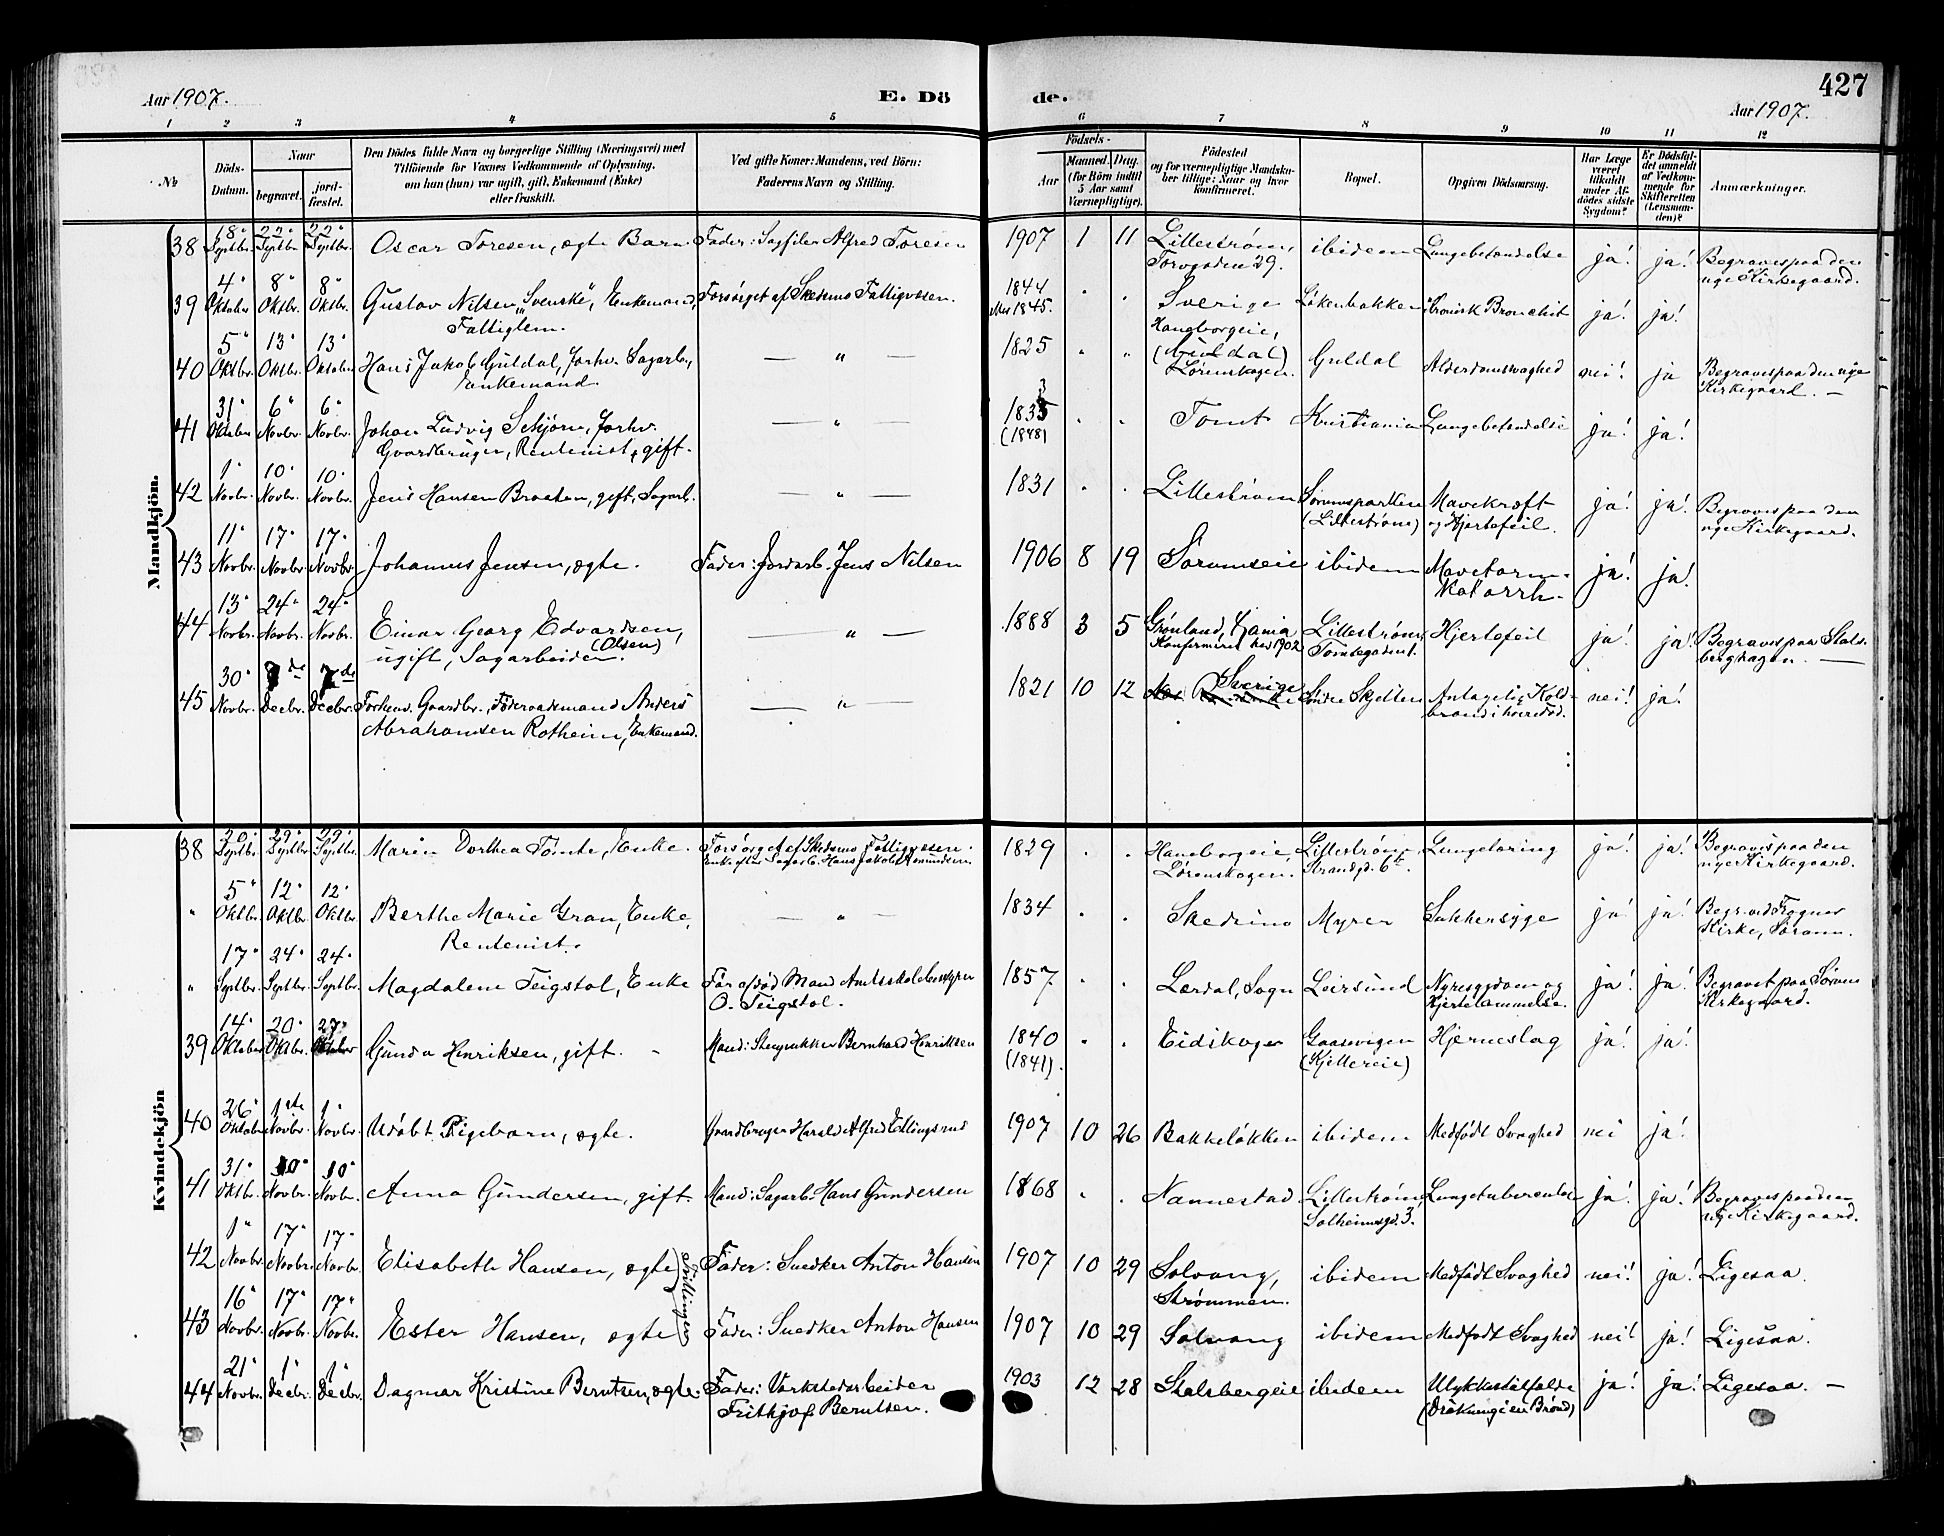 427
Aar 1907.
E. Dö
de.
Aar 1907.
1 2 3 4 5 6 7 8 9 10 11 12
No
Döds-Datum.
Naar
begravet.
jord-fæstet.
Den Dödes fulde Navn og borgerlige Stilling (Næringsvei) med
Tilföiende for Voxnes Vedkommende af Oplysning,
om han (hun) var ugift, gift, Enkemand (Enke)
eller fraskilt.
Ved gifte Koner: Mandens, ved Börn:
Faderens Navn og Stilling.
Födsels-
Aar
Maaned. Dag.
(for Börn indtil
5 Aar samt
Værnepligtige).
Födested
og for værnepligtige Mandskaber tillige: Naar og hvor
konfirmeret.
Bopæl.
Opgiven Dödsaarsag.
Har Læge
været
tilkaldt
under Afdödes sidste
Sygdom?
Er Dödsfaldet anmeldt
af Vedkommende for
Skifteretten
(Lensmanden)?
Anmærkninger.
Mandkjön.
38 18' Septbr. 22' Septbr. 22' Septbr. Oscar Toresen, ægte Barn. Fader: Sagfiler Alfred Toresen 1907 1 11 Lillestrøm, Torvgaden 29. ibidem Lungebetændelse ja! ja! Begraves paa den nye Kirkegaard.
39 4' Oktober 8' Oktbr. 8' Oktbr. Gustav Nilsen "Svenske", Enkemand, Fattiglem. Forsørget af Skedsmo Fattigvæsen. 1844 eller 1845. " " Sverige Løkenbakken Kronisk Bronchit ja! ja!
40 5' Oktbr. 13' Oktbr. 13' Oktober Hans Jakob Guldal, forhv. Sagarb., Enkemand. — " — 1825 " " Haugborgeie, (Guldal) Lørenskogen. Guldal Alderdomssvaghed nei! ja Begraves paa den nye Kirkegaard. —
41 31' Oktober 6' Novbr. 6' Novbr. Johan Ludvig Schjørn, forhv. Gaardbruger, Rentenist, gift. — " — 1835 3 (1848) " " Tomt Kristiania Lungebetændelse ja! ja!
42 1' Novbr. 10' Novbr. 10' Novbr. Jens Hansen Braaten, gift, Sagarb. — " — 1831 " " Lillestrøm Sørumsparken (Lillestrøm) Mavekræft og Hjertefeil. ja! ja! Begraves paa den nye Kirkegaard.
43 11' Novbr. 17' Novbr. 17' Novbr. Johannes Jensen, ægte. Fader: Jordarb. Jens Nilsen 1906 8 19 Sørumseie ibidem Mavetarm-Katarrh. ja! ja!
44 13' Novbr. 24' Novbr. 24' Novbr. Einar Georg Edvardsen, ugift, Sagarbeider. (Olsen) — " — 1888 3 5 Grønland, Kania Konfirmeret her 1902 Lillestrøm, Tomtegaden 1. Hjertefeil ja! ja! Begraves paa Stalsberghagen. —
45 30' Novbr. 7de Decbr. 7de Decbr. Forhenv. Gaardbr., Føderaadsmand Anders Abrahamsen Rotheim, Enkemand. — " — 1821 10 12 Sverige Søndre Skjetten Antagelig Koldbrand i høire Fod. nei! ja!
Kvindekjön
38 20' Septbr. 29' Septbr. 29' Septbr. Maren Dorthea Tomte, Enke. Forsørget af Skedsmo Fattigvæsen. Enke efter Sagarb. Hans Jakob Amundsen. 1829 " " Haugborgeie, Lørenskogen. Lillestrøm, Strandgd. 6b. Lungetæring ja! ja! Begraves paa den nye Kirkegaard.
" 5' Oktbr. 12' Oktbr. 12' Oktbr. Berthe Marie Gran, Enke, Rentenist. — " — 1834 " " Skedsmo Myrer Sukkersyge ja! ja! Begr. ved Frogner Kirke, Sørum.
" 17' Septbr. 24' Septbr. 24' Septbr. Magdalene Teigstol, Enke Før afdød Mand Amtsskolebestyrer O. Teigstol. 1857 " " Lærdal, Sogn Leirsund Nyresygdom og Hjertelammelse. ja! ja! Begravet paa Sørum Kirkegaard.
39 14' Oktober 20' Oktbr. 27' Oktober Gunda Henriksen, gift. Mand: Stenhukker Bernhard Henriksen 1840 (1841). " " Eidskogen Gaasevigen (Kjellereie) Hjerneslag ja! ja!
40 26' Oktober 1ste Novbr. 1' Novbr. Udøbt Pigebarn, ægte. Gaardbruger Harald Alfred Ellingsrud 1907 10 26 Bakkeløkken ibidem Medfødt Svaghed nei ja!
41 31' Oktbr. 10' Novbr. 10' Novbr. Anna Gundersen, gift. Mand: Sagarb. Hans Gundersen 1868 " " Nannestad Lillestrøm, Solheimsgd. 3. Lungetuberculose ja! ja! Begraves paa den nye Kirkegaard.
42 1' Novbr. 17' Novbr. 17' Novbr. Elisabeth Hansen, ægte (Tvillinger) Fader: Snedker Anton Hansen 1907 10 29 Solvang, Strømmen. ibidem Medfødt Svaghed nei! ja! Ligesaa.
43 16' Novbr. 17' Novbr. 17' Novbr. Ester Hansen, ægte Fader: Snedker Anton Hansen 1907 10 29 Solvang ibidem Medfødt Svaghed nei! ja! Ligesaa.
44 21' Novbr. 1' Decbr. 1' Decbr. Dagmar Kristine Berntsen, ægte. Fader: Værkstedsarbeider Frithjof Berntsen. 1903 12 28 Stalsbergeie ibidem Ulykkestilfælde (Drukning i en Brønd) ja! ja! Ligesaa. —